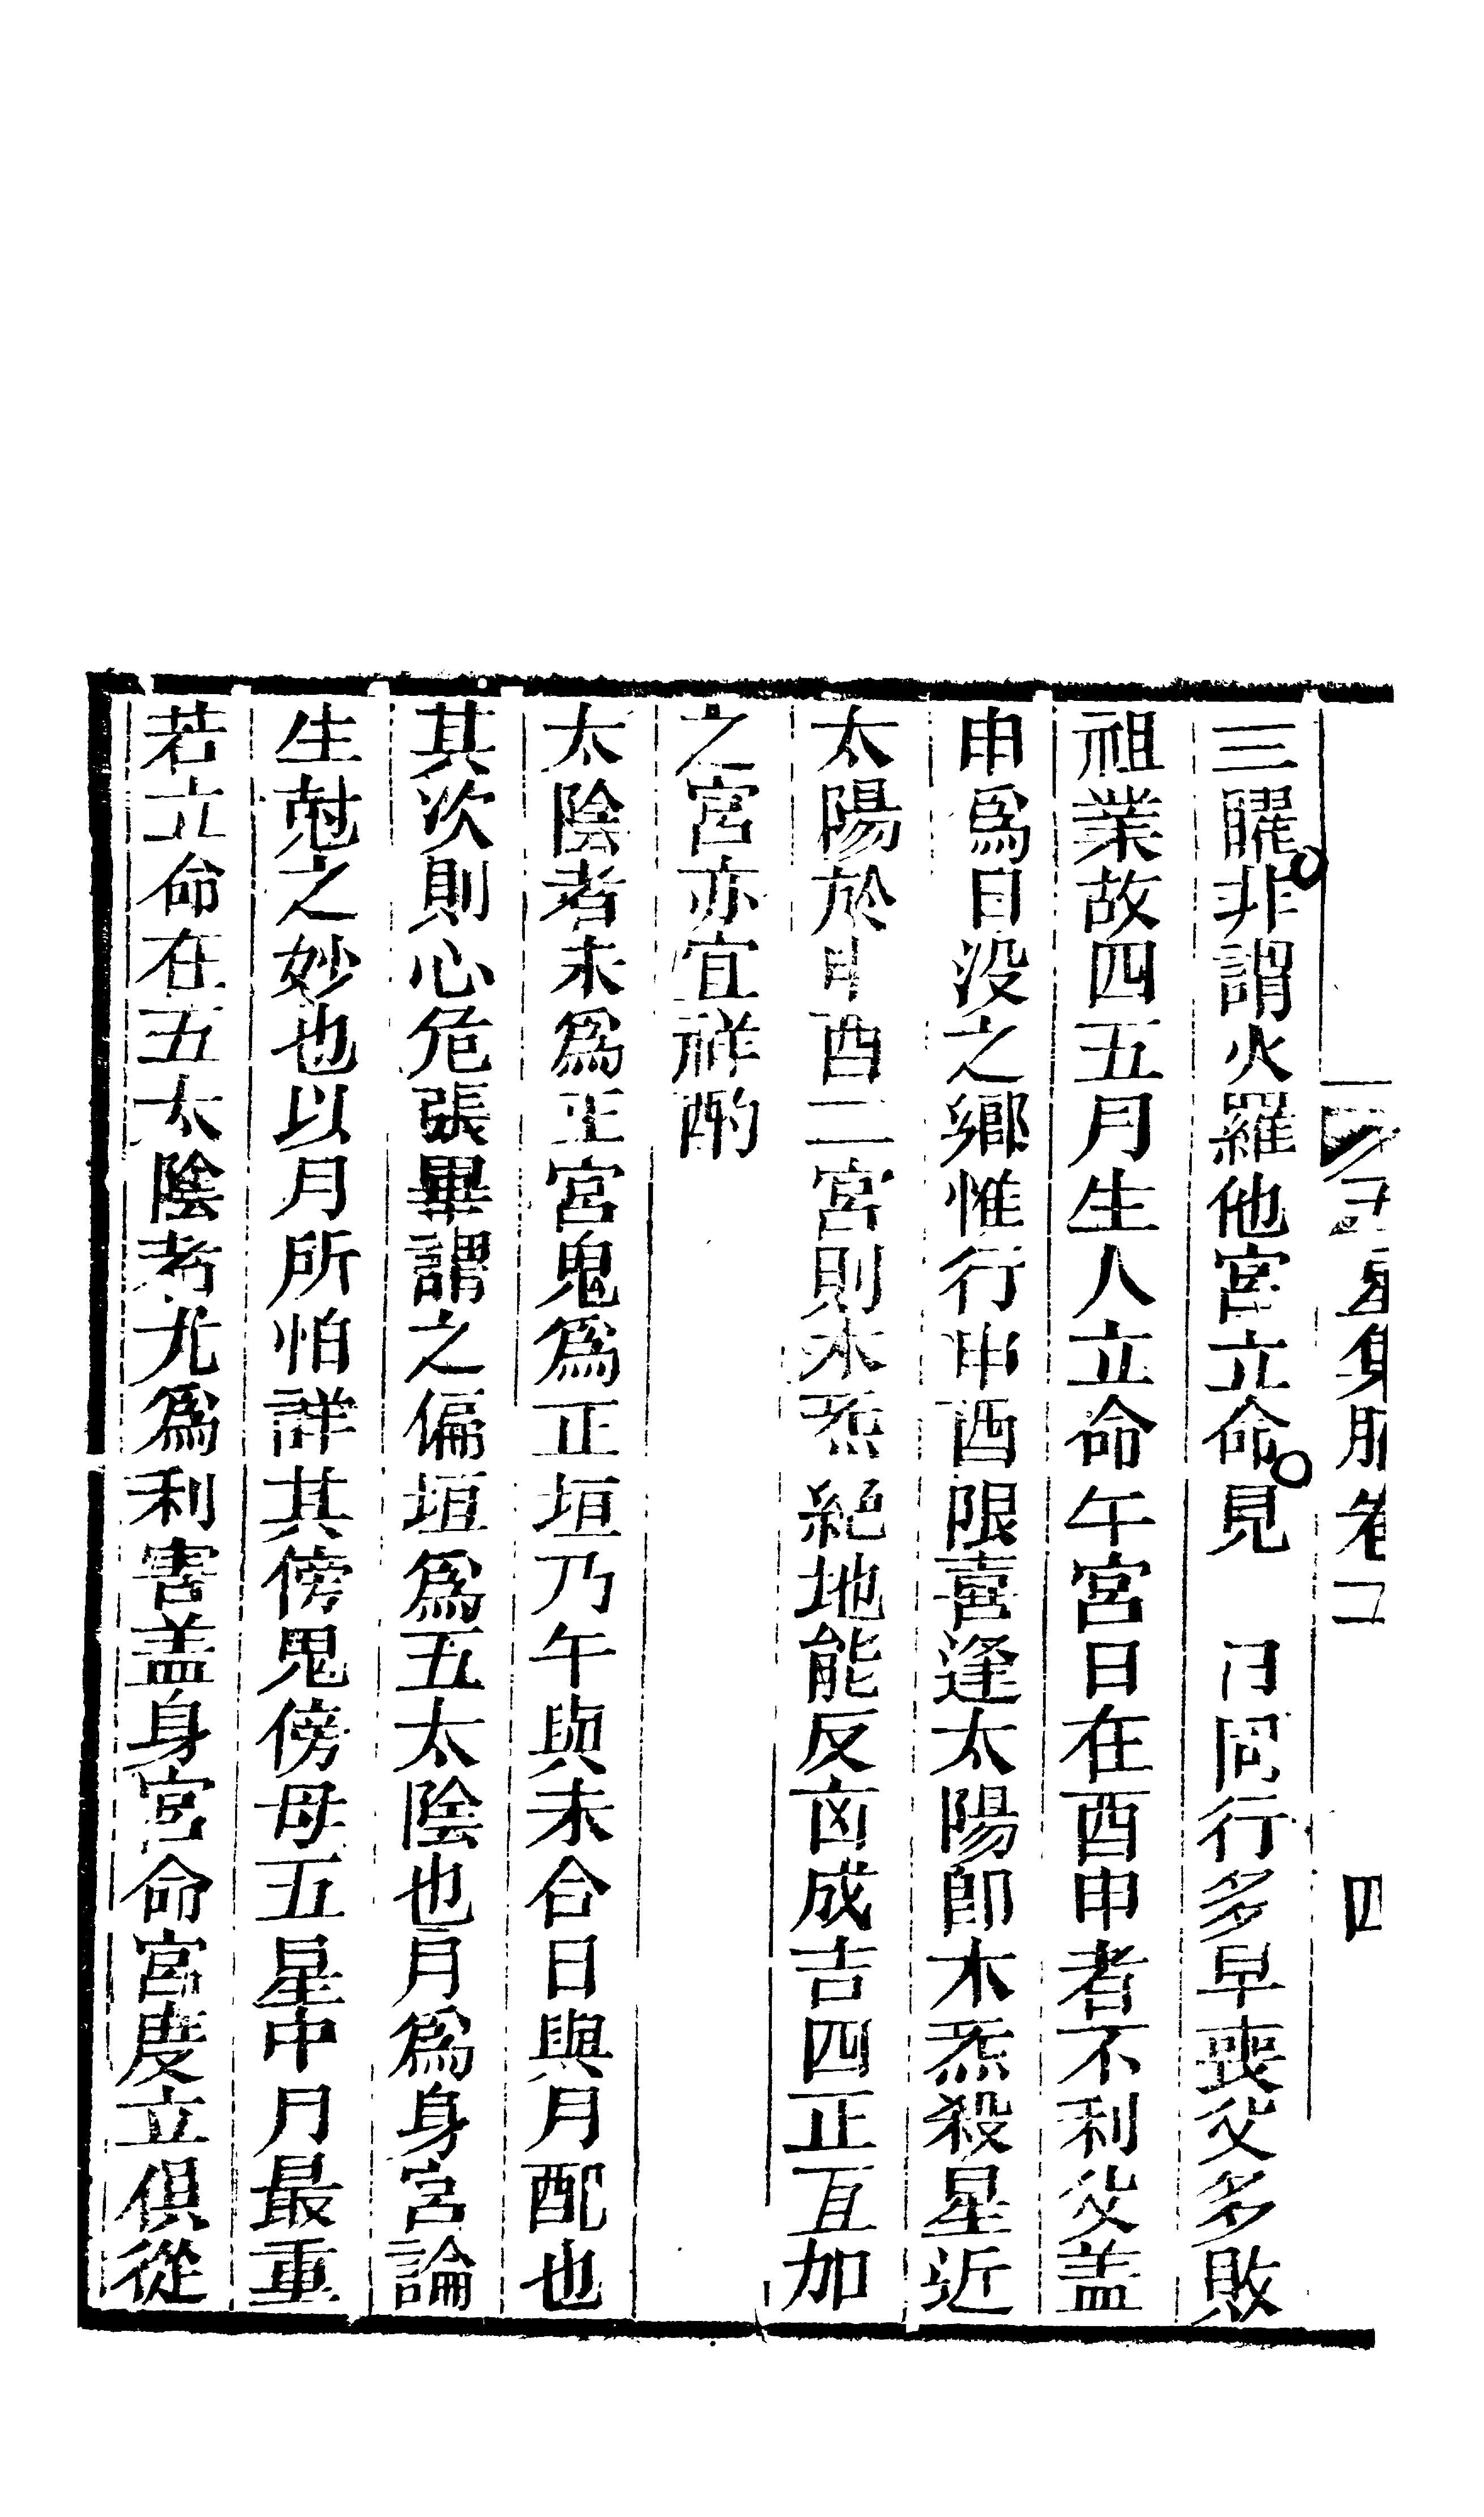 三曜非謂火羅他宮立命見日同行多早喪父多敗
祖業故四五月生人立命午宮日在酉申者不利父盖
申爲日没之鄉惟行申酉限喜逢太陽即木炁殺星近
太陽於申酉二宮則木炁絕地能反凶成吉四正互加
之宮亦宜祥酌
太陰者未爲正宮鬼爲正垣乃午與未合日與月配也
其次則心危張畢謂之偏垣爲五太陰也月爲身宮論
生尅之妙也以月所怕詳其傍鬼傍母五星中月最重
若立命在五太陰者尤爲利害盖身宮命宮度立俱從
卷二
四